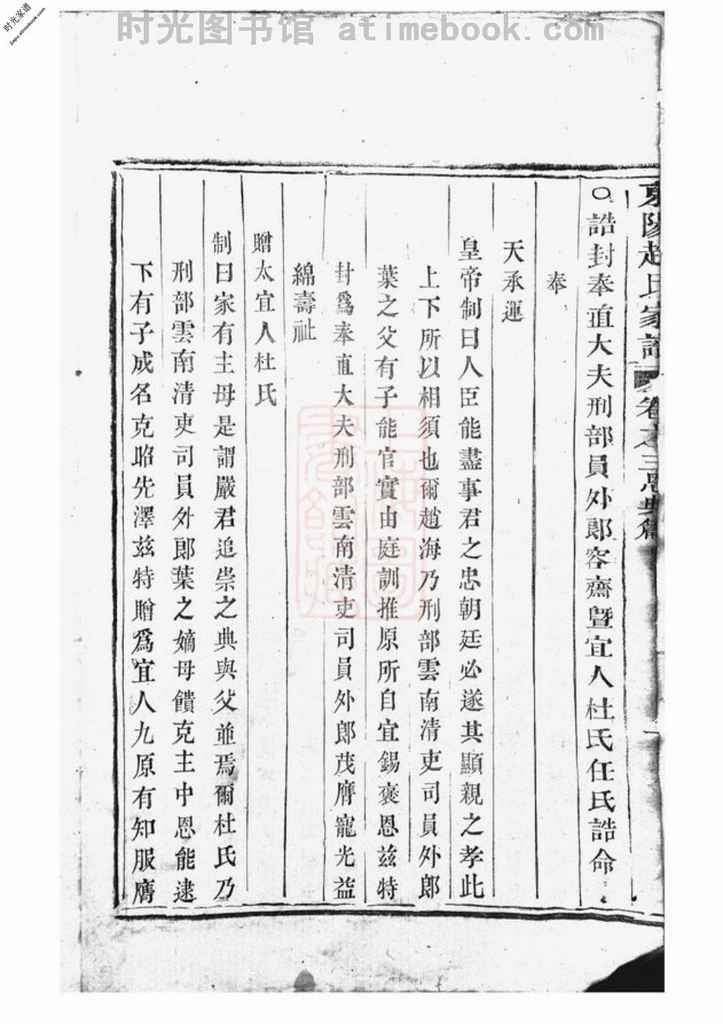 时光图书馆 atimebook.com
时光家谱
東陽趙氏家譜 卷之三恩典篇 一
○誥封奉直大夫刑部員外郎容齋暨宜人杜氏任氏誥命
奉
天承運
皇帝制曰人臣能盡事君之忠朝廷必遂其顯親之孝此
上下所以相須也爾趙海乃刑部雲南清吏司員外郎
葉之父有子能官實由庭訓推原所自宜錫褒恩茲特
封爲奉直大夫刑部雲南清吏司員外郎茂膺寵光益
綿壽祉
贈太宜人杜氏
制曰家有主母是謂嚴君追崇之典與父並焉爾杜氏乃
刑部雲南清吏司員外郎葉之嫡母饋克主中恩能逮
下有子成名克昭先澤茲特贈爲宜人九原有知服膺